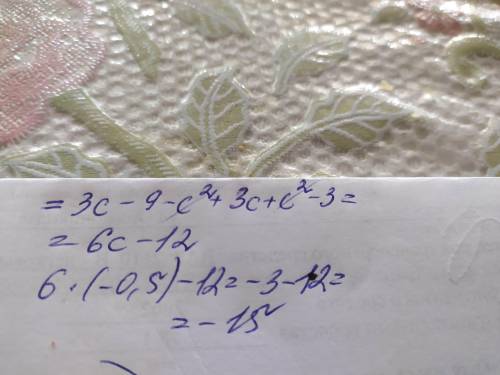 = 3c - 9 - c² + 3c + c² - 3 =
= 6c - 12
6 · (-0,5) - 12 = -3 - 12 =
= -15